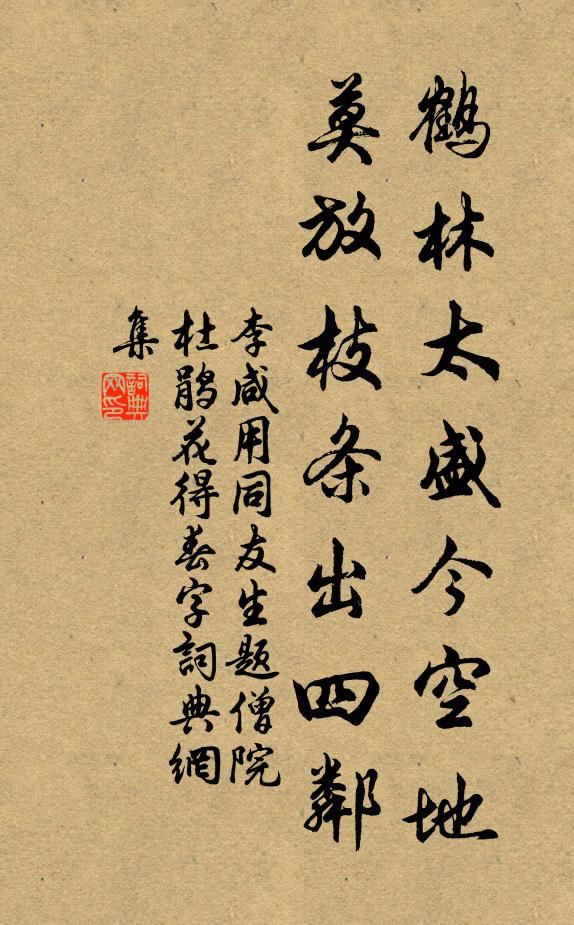 鹤林太盛今空地
莫放枝条出四鄰
李咸用同友生题僧院
杜鹃花得春字詞典網
集